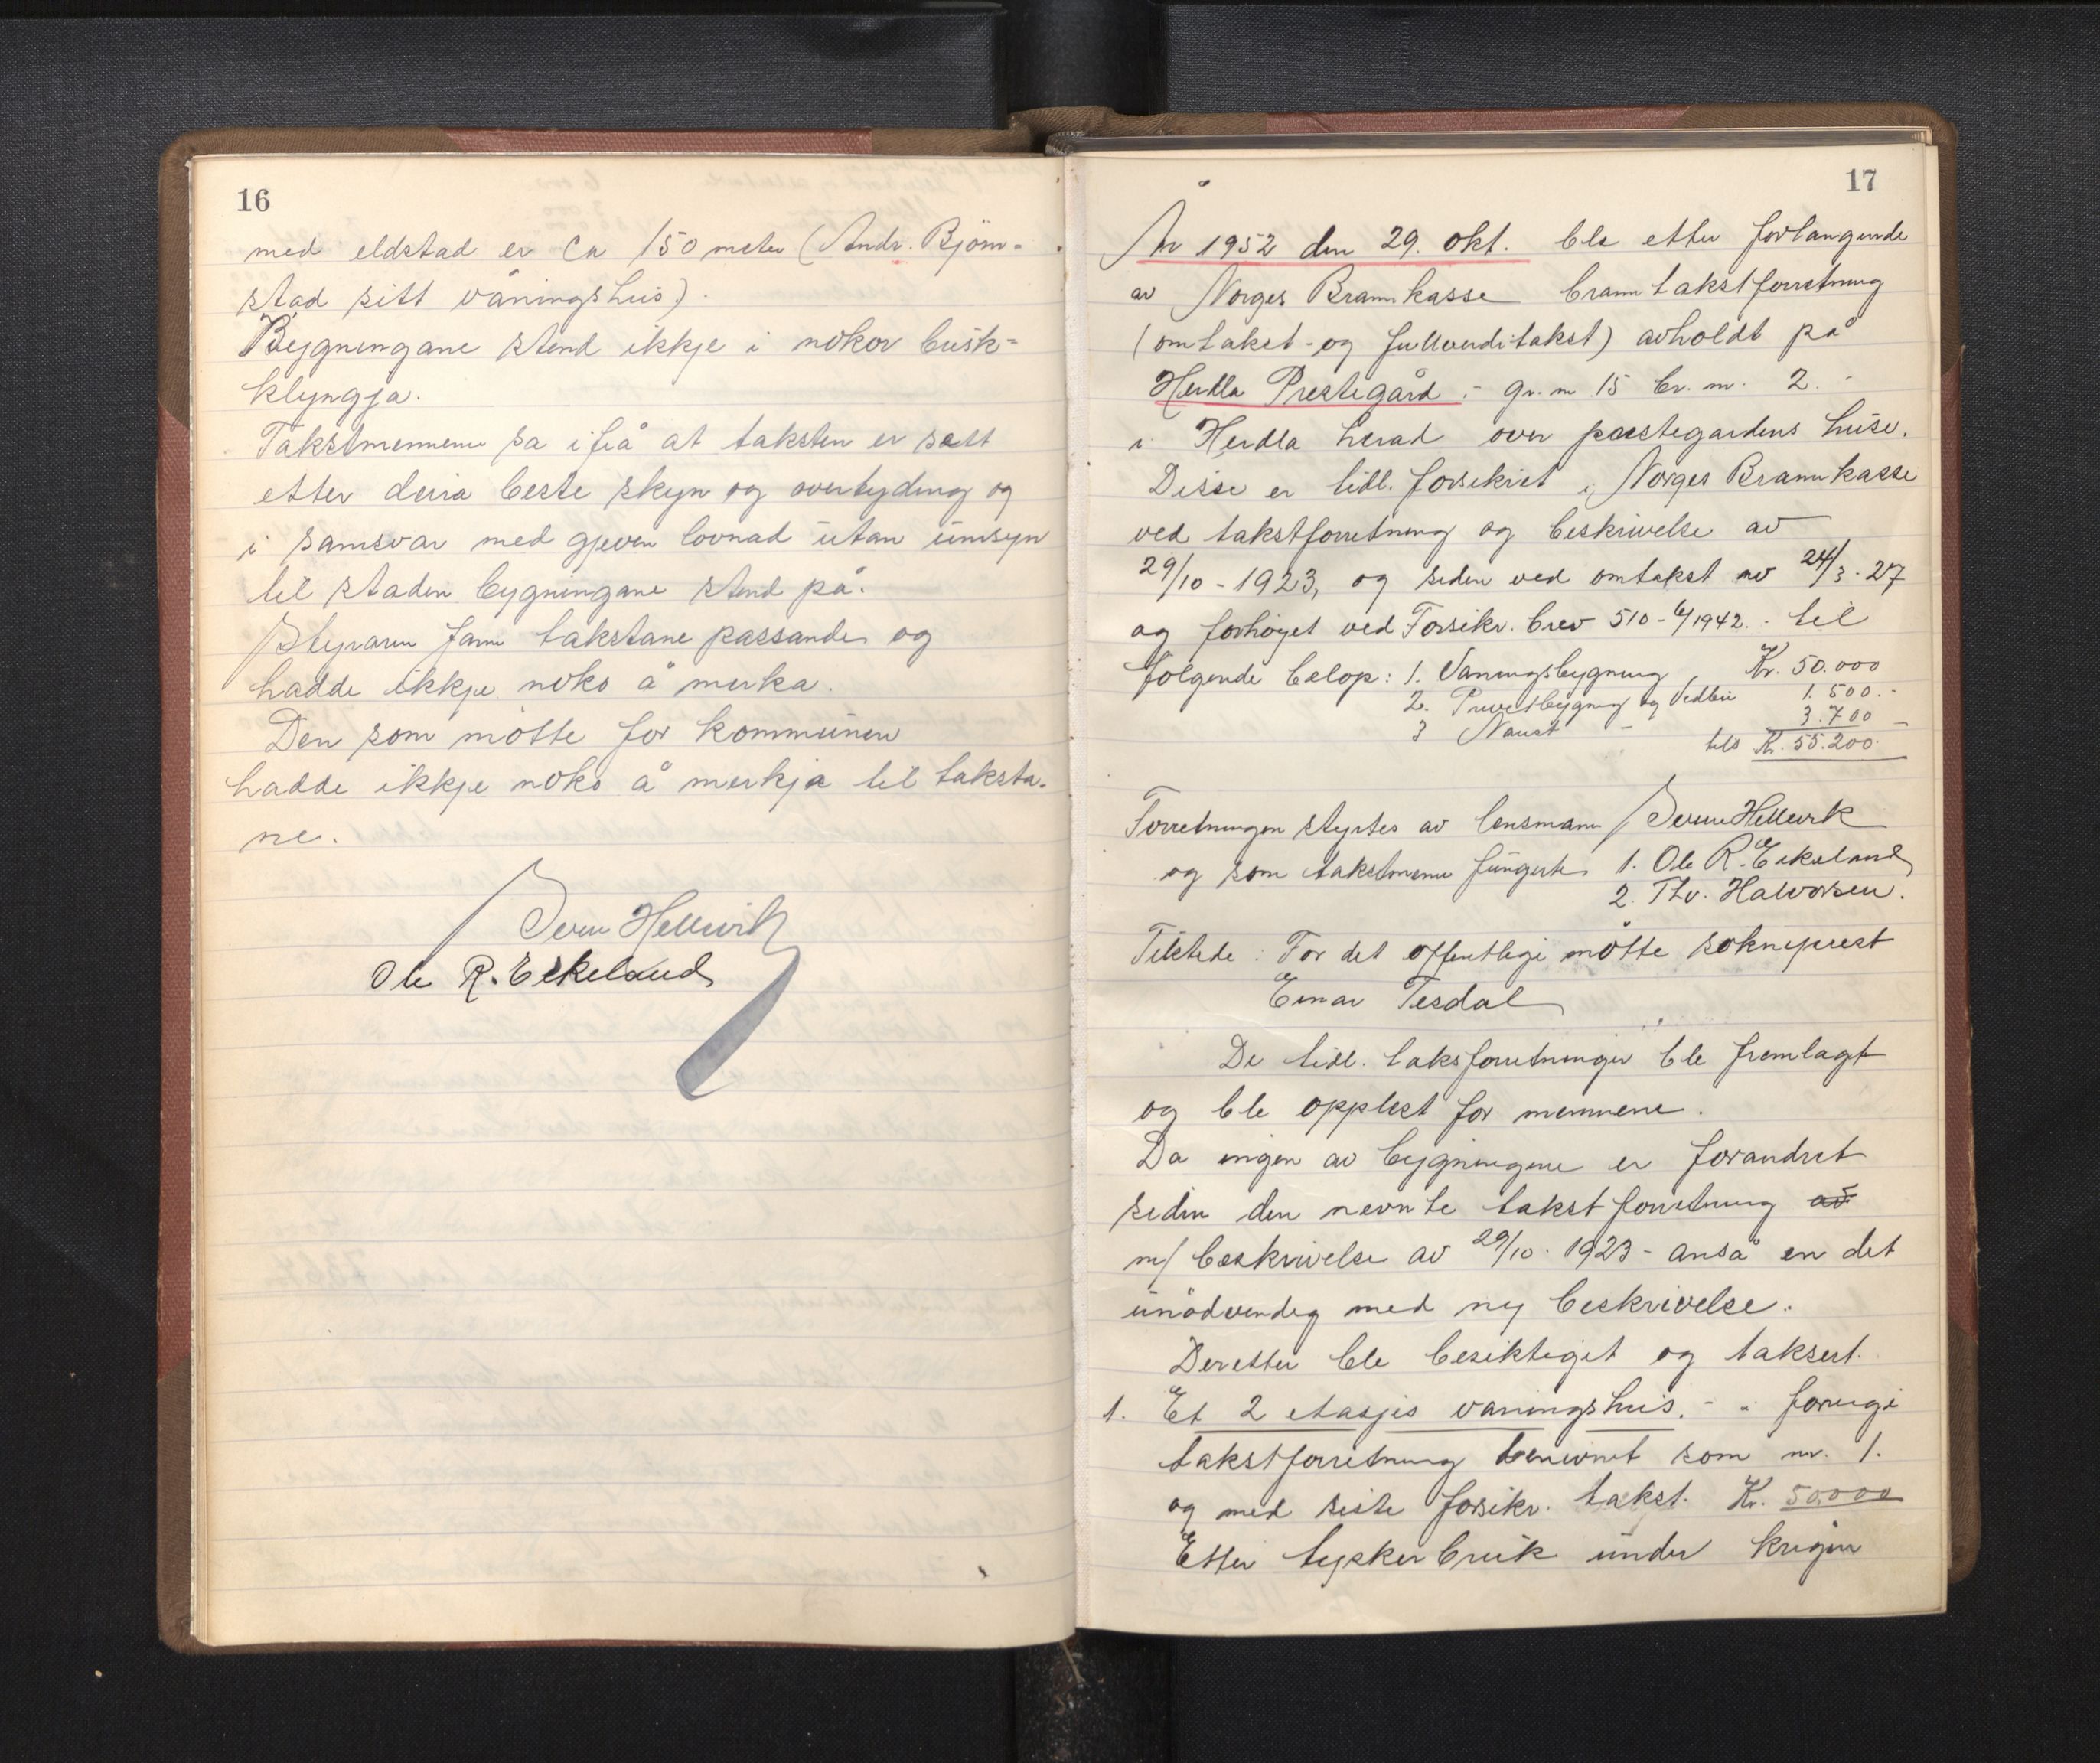 16
med eldstad er ca 150 meter (Andr. Bjørn-
stad sitt våningshus).
Bygningane stend ikkje i nokor busk-
klyngja.
Takstmennene sa ifrå at taksten er sett
etter deira beste skyn og overtyding og
i samsvar med gjeven lovnad utan umsyn
til staden bygningane stend på.
Styraren fann takstane passande og
hadde ikkje noko å merka.
Den som møtte for kommunen
hadde ikkje noko å merkja til taksta-
ne.
Hellevik
Ole R. Eikeland
17
År 1952 den 29. okt. ble etter forlangende
av Norges Brannkasse branntakstforretning
(omtakst- og fullverditakst) avholdt på
Herdla Prestegård - gr. nr 15 br. nr. 2. -
i Herdla herad over prestegardens huse.
Disse er tidl. forsikret i Norges Brannkasse
ved takstforretning og beskrivelse av
29/10 - 1923, og siden ved omtakst av 24/3 - 27
og forhøyet ved Forsikr. brev 510 - 6/1942. - til
følgende beløp: 1. Våningsbygning Kr. 50.000
2. Privetbygning og Vedbu 1.500.-
3 Naust - 3.700 -
tils Kr. 55.200.
Forretningen styrtes av lensmann Hellevik
og som takstmenn fungerte 1. Ole R. Eikeland
2. Thv. Halvorsen.
Tilstede: For det offentlige møtte sokneprest
Einar Tesdal
De tidl. taksforretninger ble fremlagt
og ble opplest for mennene.
Da ingen av bygningene er forandret
siden den nevnte takstforretning av
m/ beskrivelse av 29/10 - 1923 - anså en det
unødvendig med ny beskrivelse.
Deretter ble besiktiget og taksert.
1. Et 2 etasjes våningshus. - i forrige
takstforretning benevnt som nr. 1.
og med siste forsikr. takst. Kr. 50.000
Etter tyskerbruk under krigen